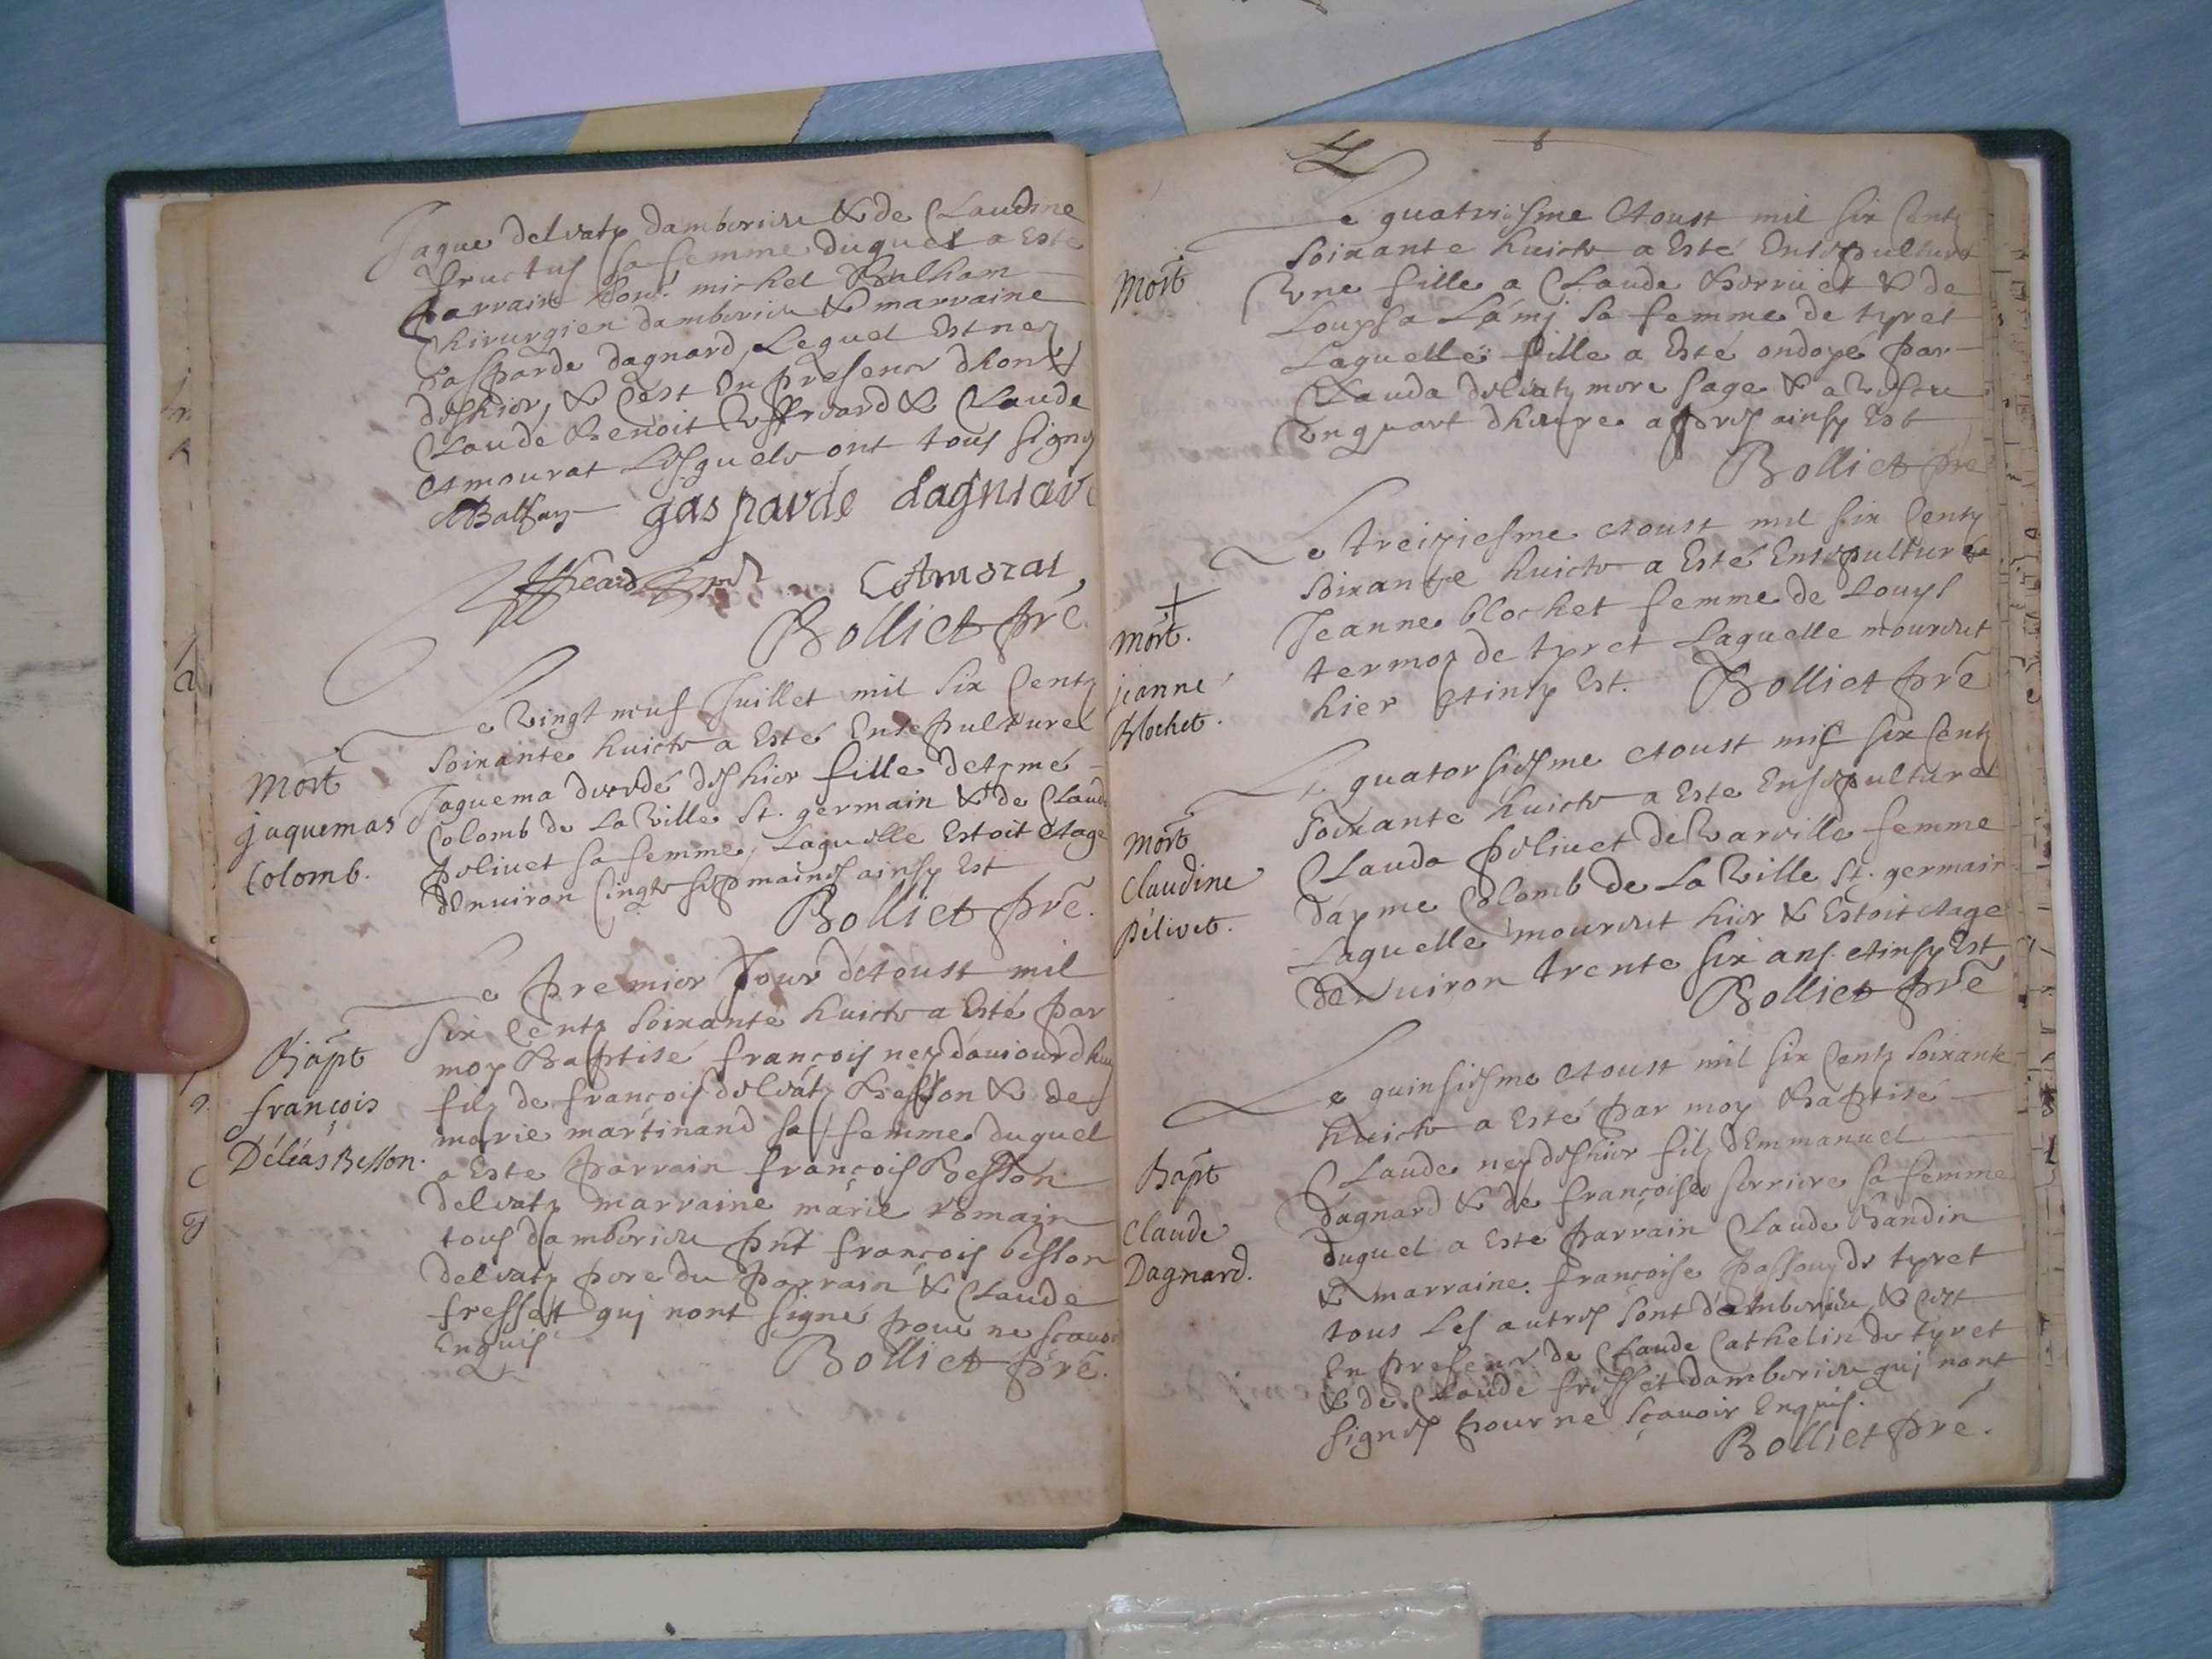 Jaque deleatz damberieu & de Claudine
fructus sa femme duquel a Esté
parrain hon. michel Balham
Chirurgien damberieu & marraine
Gasparde dagnard, Lequel Est nez
deshier, & c'est En presence dhon.
Claude Benoit & Claude
Amourat Lesquels ont tous signez
gasparde dagniard
Amorat
Bolliet pre.
Le Vingt neuf Juillet mil six Centz
soixante huict a Esté Ensepulturé
Mort
jaquemas
Colomb.
Jaquema deshier fille dAymé
Colomb de La Ville St. germain & de Claud
pelivet sa femme, Laquelle Estoit Aage
denuiron Cinqts sepmaines ainsy Est
Bolliet pre.
Le premier Jour d'Aoust mil
six Centz soixante huict a Esté par
Bapt
francois
Déléas Besson.
moy Baptisé françois nez daujourdhuy
filz de françois deleatz Besson & de
marie martinand sa femme duquel
a Este parrain françois Besson
deleatz marraine marie romain
tous damberieu pnt françois besson
deleatz pere du parrain & Claude
fresset quj nont signé pour ne scavoir
Enquis
Bolliet pre.
Le quatriesme Aoust mil six Centz
soixante huict a Esté Ensepulturé
Mort
Vne fille a Claude Borriet & de
Louysa Lámj sa femme de tyret
Laquelle fille a Esté ondoyé par
Clauda deleatz mere sage & a Vescu
Vn quart dheure apres ainsy Est
Bolliet pre
Le treiziesme Aoust mil six Centz
soixante huict a Esté Ensepulturée
+
mort.
jeanne
Blochet.
Jeanne blochet femme de Louys
termoz de tyret Laquelle mourust
hier Ainsy Est. Bolliet pre
Le quatorsiesme Aoust mil six Centz
soixante huict a Este Ensepulturé
Mort
Claudine
Pélivet.
Clauda peliuet de Varville femme
dáyme Colomb de La Ville St. germain
Laquelle mourust hier & Estoit Aage
denuiron trente six ans. Ainsy Est
Bolliet pre
Le quinsiesme Aoust mil six Centz soixante
huict a Esté par moy Baptisé
Bapt
Claude
Dagnard.
Claude nez deshier filz dEmmanuel
dagnard & de françoise serriere sa femme
duquel a Esté parrain Claude Bandin
& marraine françoise passouz de tyret
tous Les autres sont damberieu & c'est
En presence de Claude Cathelin de tyret
& de Claude fresset damberieu quj nont
signes pour ne sçauoir Enquis.
Bolliet pre.